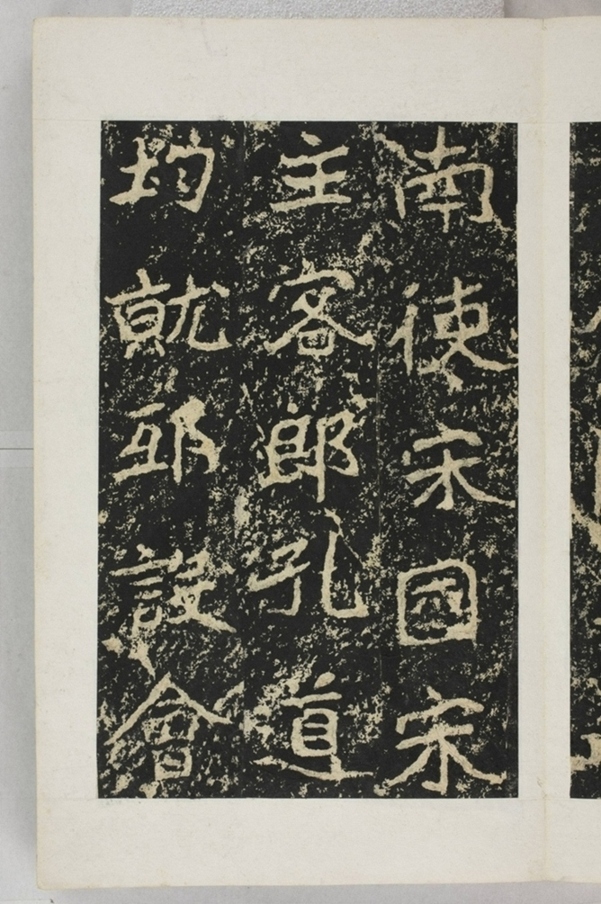 南使宋國宋
主客郎孔道
均就邸設會